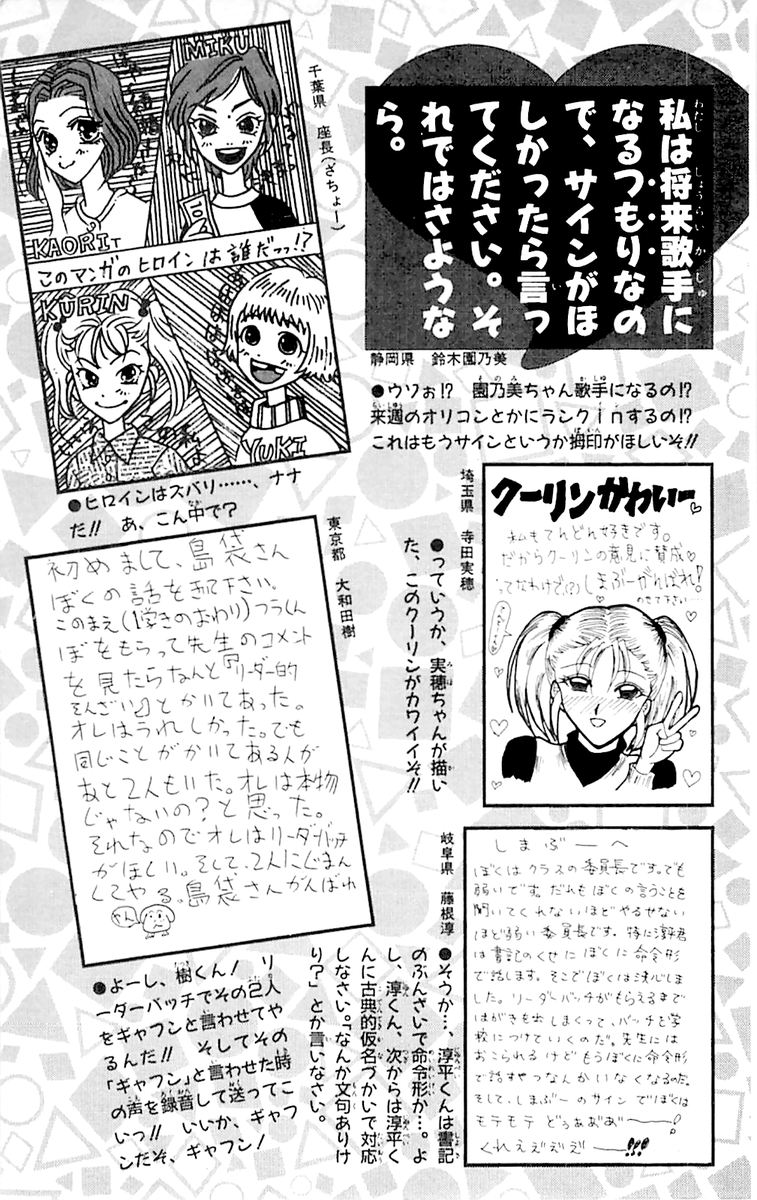 私は将来歌手に
なるつもりなの
で、サインがほ
しかったら言っ
てください。そ
れではさような
ら。
静岡県 鈴木園乃美
●ウソぉ!? 園乃美ちゃん歌手になるの!?
来週のオリコンとかにランクinするの!?
これはもうサインというか拇印がほしいぞ!!
千葉県 座長(ざちょー)
MIKU
KAORI
このマンガのヒロインは誰だっっ!?
KURIN
YUKI
●ヒロインはズバリ……、ナナ
だ!! あ、こん中で?
埼玉県 寺田実穂
クーリンかわいー
私もてれどれ好きです。
だからクーリンの意見に賛成♡
ってなわけで(?)しまぶーがんばれ!
のせて下さい
●っていうか、実穂ちゃんが描い
た、このクーリンがカワイイぞ!!
東京都 大和田樹
初めまして、島袋さん
ぼくの話をきいて下さい。
このまえ(1学きのおわり)つうしん
ぼをもらって先生のコメント
を見たらなんと『リーダー的
そんざい』とかいてあった。
オレはうれしかった。でも
同じことがかいてある人が
あと2人もいた。オレは本物
じゃないの?と思った。
それなのでオレはリーダーバッチ
がほしい。そして、2人にじまん
してやる。島袋さんがんばれ
●よーし、樹くん! リ
ーダーバッチでその2人
をギャフンと言わせてや
るんだ!! そしてその
「ギャフン」と言わせた時
の声を録音して送ってこ
いっ!! いいか、ギャフ
ンだぞ、ギャフン!
岐阜県 藤根淳
しまぶーへ
ぼくはクラスの委員長です。でも
弱いです。だれもぼくの言うことを
聞いてくれないほどやるせない
ほど弱い委員長です。特に淳平君
は書記のくせにぼくに命令形
で話します。そこでぼくは決心しま
した。リーダーバッチがもらえるまで
はがきを出しまくって、バッチを学
校につけていくのだ。先生には
おこられるけどもうぼくに命令形
で話すやつなんかいなくなるのだ。
そして、しまぶーのサインでぼくは
モテモテ どぅぁぁぁー!
くれえぇぇぇー!!!
●そうか…、淳平くんは書記
のぶんさいで命令形か…。よ
し、淳くん、次からは淳平く
んに古典的仮名づかいで対応
しなさい。「なんか文句ありけ
り?」とか言いなさい。